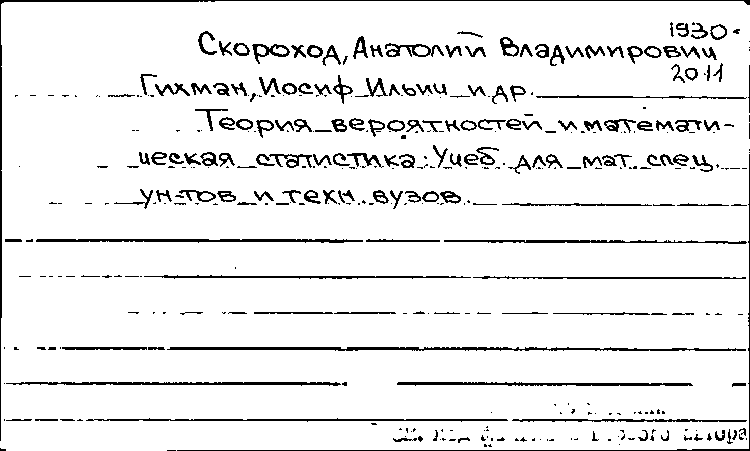 1930-
Скороход, Анатолий Владимирович
2011
Гихман, Иосиф Ильич и др.
Теория вероятностей и математи-
ческая статистика: Учеб. для мат. спец.
ун-тов и техн. вузов.